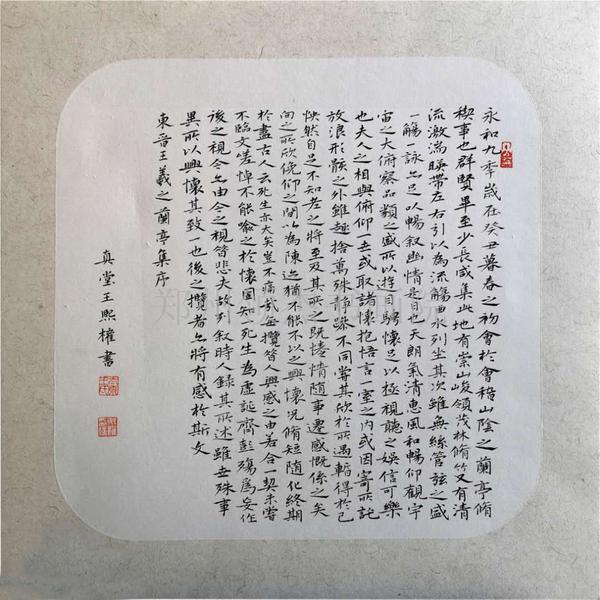 永和九年歲在癸丑暮春之初會於會稽山陰之蘭亭脩
稧事也群賢畢至少長咸集此地有崇山峻領茂林脩竹又有清
流激湍暎帶左右引以為流觴曲水列坐其次雖無絲管弦之盛
一觴一詠亦足以暢叙幽情是日也天朗氣清惠風和暢仰觀宇
宙之大俯察品類之盛所以遊目騁懷足以極視聽之娛信可樂
也夫人之相與俯仰一世或取諸懷抱悟言一室之內或因寄所託
放浪形骸之外雖趣捨萬殊靜躁不同當其欣於所遇暫得於己
怏然自足不知老之將至及其所之既惓情隨事遷感慨係之矣
向之所欣俛仰之間以為陳迹猶不能不以之興懷況脩短隨化終期
於盡古人云死生亦大矣豈不痛哉每攬昔人興感之由若合一契未嘗
不臨文嗟悼不能喻之於懷固知死生為虛誕齊彭殤為妄作
後之視今亦由今之視昔悲夫故列叙時人錄其所述雖世殊事
異所以興懷其致一也後之攬者亦將有感於斯文
東晉王羲之蘭亭集序
真堂王熙權書